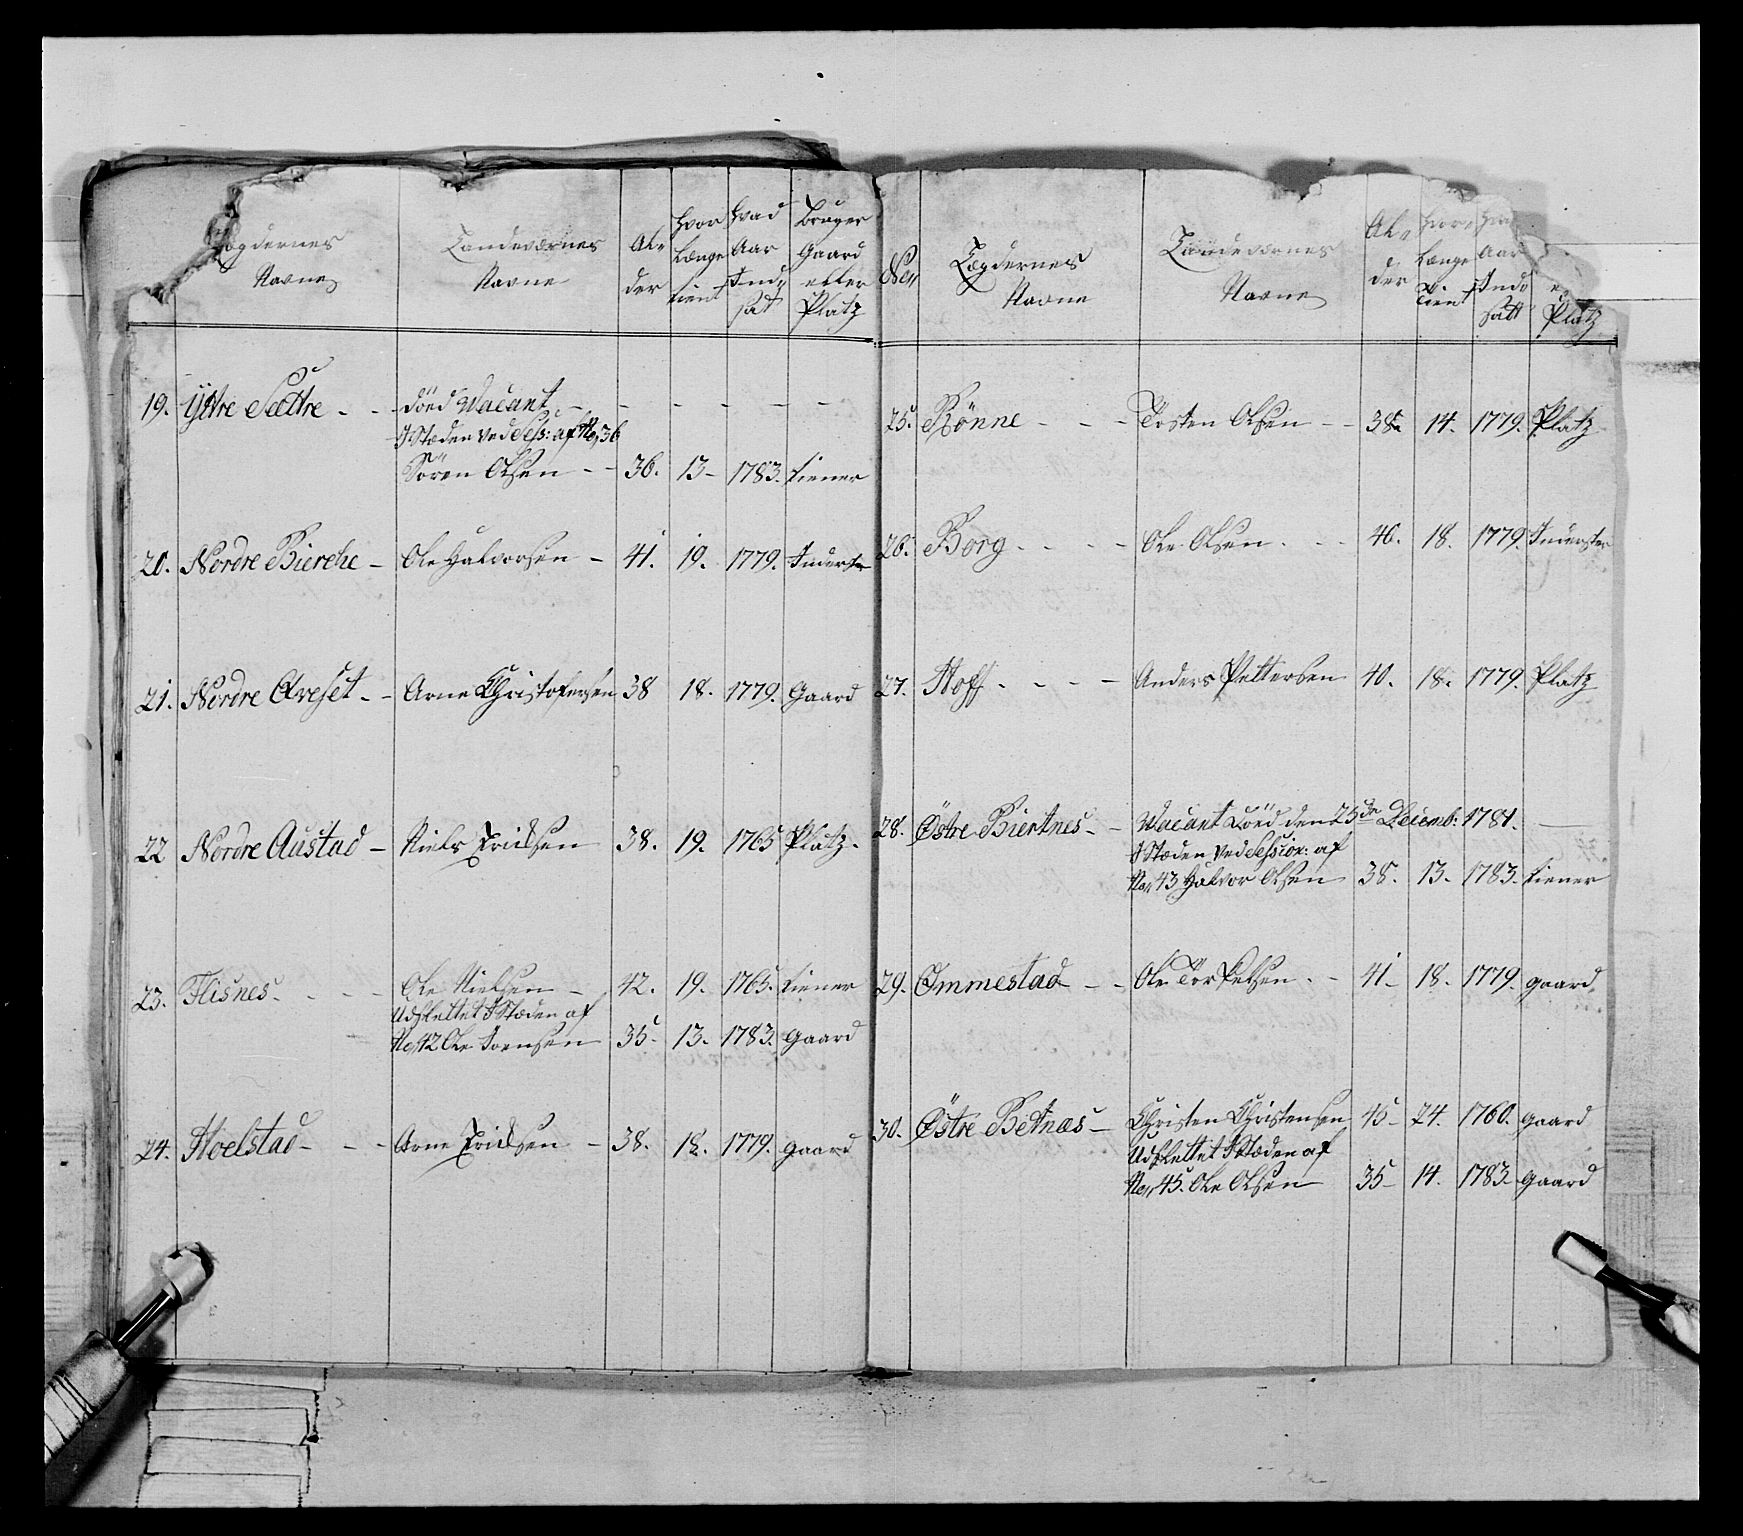 Lægdernes Navne | Landeværnes Navne | Al„ der | hvor længe tient | hvad Aar Ind„ satt | bruger Gaard eller Platz
19. Ytre Sættre - - | döed Vacant - - - - - -
I Stæden ved Sess: af No, 36
Sören Olsen - - | 36. | 13- | 1783. | tiener
20. Nordre Bierche - | Ole Halvorsen - | 41. | 19. | 1779. | Inderste
21. Nordre Qveset - - | Arne Christofersen | 38 | 18. | 1779. | Gaard
22 Nordre Austad - | Niels Ericksen | 38. | 19. | 1765 | Platz.
23. Flisnes - - - - | Ole Nielsen - | 42. | 19. | 1765. | tiener
Udslettet I Stæden af
No, 42 Ole Joensen | 35. | 13. | 1783. | gaard
24. Hoelstad - - - | Arne Ericksen - | 38. | 18. | 1779. | gaard
No„ | Lægdernes Navne | Landeværnes Navne | Al„ der | hvor længe tient | Aar Ind satt | Platz
25. Rönne - - - | Torsten Olsen - - | 38. | 14. | 1779. | Platz
26. Borg - - - - | Ole Olsen - - | 40. | 18. | 1779. | Inderster
27. Hoff - - - - | Anders Pettersen | 40. | 18. | 1779. | Platz
28. Östre Biertnes - - | Vacant Död den 25de Decemb: 1781. -
I Stæden ved Session: af
No, 43 Halvor Olsen | 38. | 13. | 1783. | tiener
29. Ommestad - - | Ole Torkelsen - - | 41- | 18. | 1779. | gaard
30. Östre Betnæs - | Christen Christensen | 45- | 24. | 1760. | gaard
Udslettet I Stæden af
No, 45. Ole Olsen | 35- | 14. | 1783. | gaard